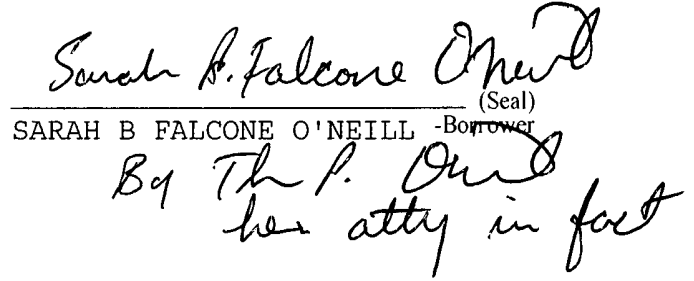 Sarah B. Falcone O'Neill
(Seal)
SARAH B FALCONE O'NEILL -Borrower
By Th P. O'Neill
her atty in fact